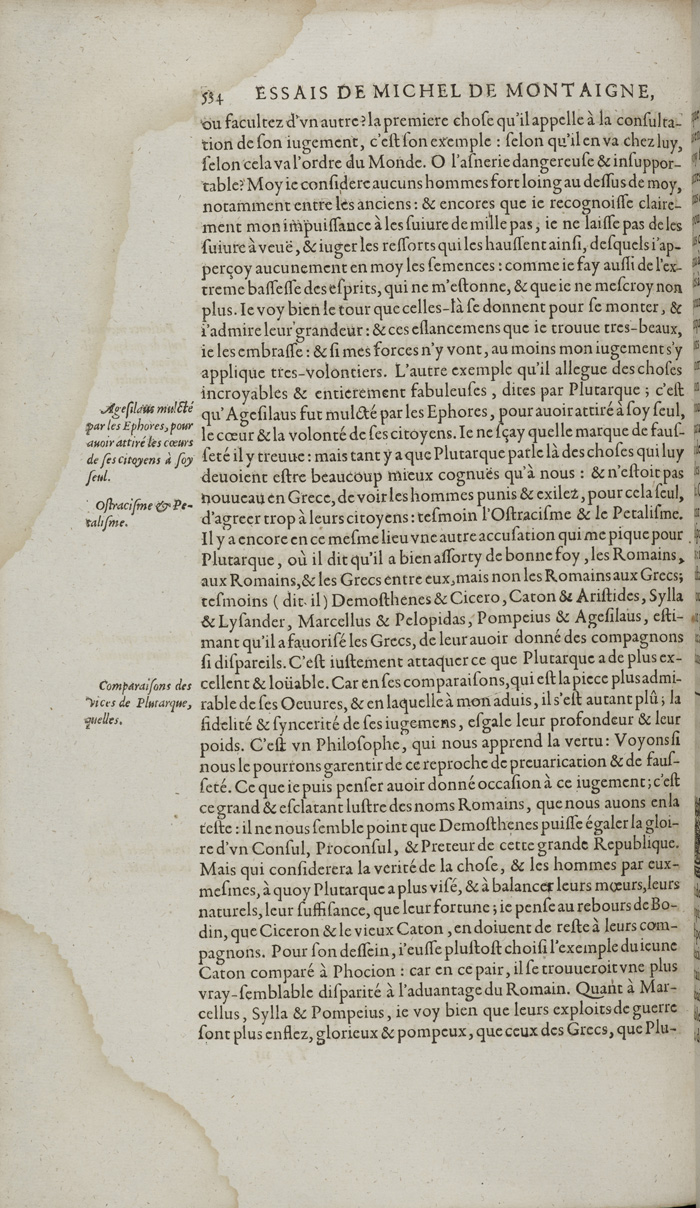 534 ESSAIS DE MICHEL DE MONTAIGNE,
ou facultez d'vn autre? la premiere choſe qu'il appelle à la conſulta-
tion de ſon iugement, c'eſt ſon exemple : ſelon qu'il en va chez luy,
ſelon cela va l'ordre du Monde. O l'aſnerie dangereuſe & inſuppor-
table? Moy ie conſidere aucuns hommes fort loing au deſſus de moy,
notamment entre les anciens : & encores que ie recognoiſſe claire-
ment mon impuiſſance à les ſuiure de mille pas, ie ne laiſſe pas de les
ſuiure à veuë, & iuger les reſſorts qui les hauſſent ainſi, deſquels i'ap-
perçoy aucunement en moy les ſemences : comme ie fay auſſi de l'ex-
treme baſſeſſe des eſprits, qui ne m'eſtonne, & que ie ne meſcroy non
plus. Ie voy bien le tour que celles-là ſe donnent pour ſe monter, &
i'admire leur grandeur : & ces eſlancemens que ie trouue tres-beaux,
ie les embraſſe : & ſi mes forces n'y vont, au moins mon iugement s'y
applique tres-volontiers. L'autre exemple qu'il allegue des choſes
incroyables & entierement fabuleuſes, dites par Plutarque ; c'eſt
qu'Ageſilaus fut mulcté par les Ephores, pour auoir attiré à ſoy ſeul,
le cœur & la volonté de ſes citoyens. Ie ne ſçay quelle marque de fauſ-
ſeté il y treuue : mais tant y a que Plutarque parle là des choſes qui luy
deuoient eſtre beaucoup mieux cognuës qu'à nous : & n'eſtoit pas
nouueau en Grece, de voir les hommes punis & exilez, pour cela ſeul,
d'agreer trop à leurs citoyens : teſmoin l'Oſtraciſme & le Petaliſme.
Il y a encore en ce meſme lieu vne autre accuſation qui me pique pour
Plutarque, où il dit qu'il a bien aſſorty de bonne foy, les Romains,
aux Romains, & les Grecs entre eux, mais non les Romains aux Grecs;
teſmoins ( dit-il ) Demoſthenes & Cicero, Caton & Ariſtides, Sylla
& Lyſander, Marcellus & Pelopidas, Pompeius & Ageſilaus, eſti-
mant qu'il a fauoriſé les Grecs, de leur auoir donné des compagnons
ſi diſpareils. C'eſt iuſtement attaquer ce que Plutarque a de plus ex-
cellent & loüable. Car en ſes comparaiſons, qui eſt la piece plus admi-
rable de ſes Oeuures, & en laquelle à mon aduis, il s'eſt autant plû ; la
fidelité & ſyncerité de ſes iugemens, eſgale leur profondeur & leur
poids. C'eſt vn Philoſophe, qui nous apprend la vertu: Voyons ſi
nous le pourrons garentir de ce reproche de preuarication & de fauſ-
ſeté. Ce que ie puis penſer auoir donné occaſion à ce iugement; c'eſt
ce grand & eſclatant luſtre des noms Romains, que nous auons en la
teſte : il ne nous ſemble point que Demoſthenes puiſſe égaler la gloi-
re d'vn Conſul, Proconſul, & Preteur de cette grande Republique.
Mais qui conſiderera la verité de la choſe, & les hommes par eux-
meſmes, à quoy Plutarque a plus viſé, & à balancer leurs mœurs, leurs
naturels, leur ſuffiſance, que leur fortune ; ie penſe au rebours de Bo-
din, que Ciceron & le vieux Caton, en doiuent de reſte à leurs com-
pagnons. Pour ſon deſſein, i'euſſe pluſtoſt choiſi l'exemple du ieune
Caton comparé à Phocion : car en ce pair, il ſe trouueroit vne plus
vray-ſemblable diſparité à l'aduantage du Romain. Quant à Mar-
cellus, Sylla & Pompeius, ie voy bien que leurs exploits de guerre
ſont plus enflez, glorieux & pompeux, que ceux des Grecs, que Plu-
Ageſilaus mulcté
par les Ephores, pour
auoir attiré les cœurs
de ſes citoyens à ſoy
ſeul.
Oſtraciſme & Pe-
taliſme.
Comparaiſons des
vices de Plutarque,
quelles.